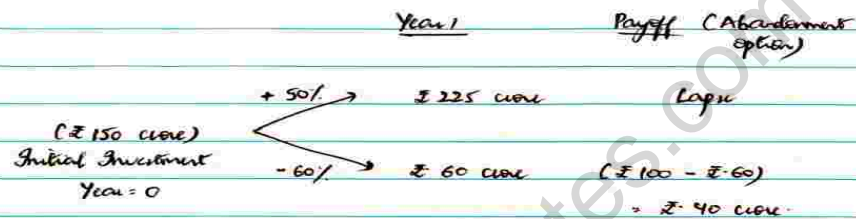 Year 1 Payoff (Abandonment
option)
+ 50% ₹ 225 crore Lapse
(₹ 150 crore)
Initial Investment - 60% ₹ 60 crore (₹ 100 - ₹ 60)
Year = 0 = ₹ 40 crore.